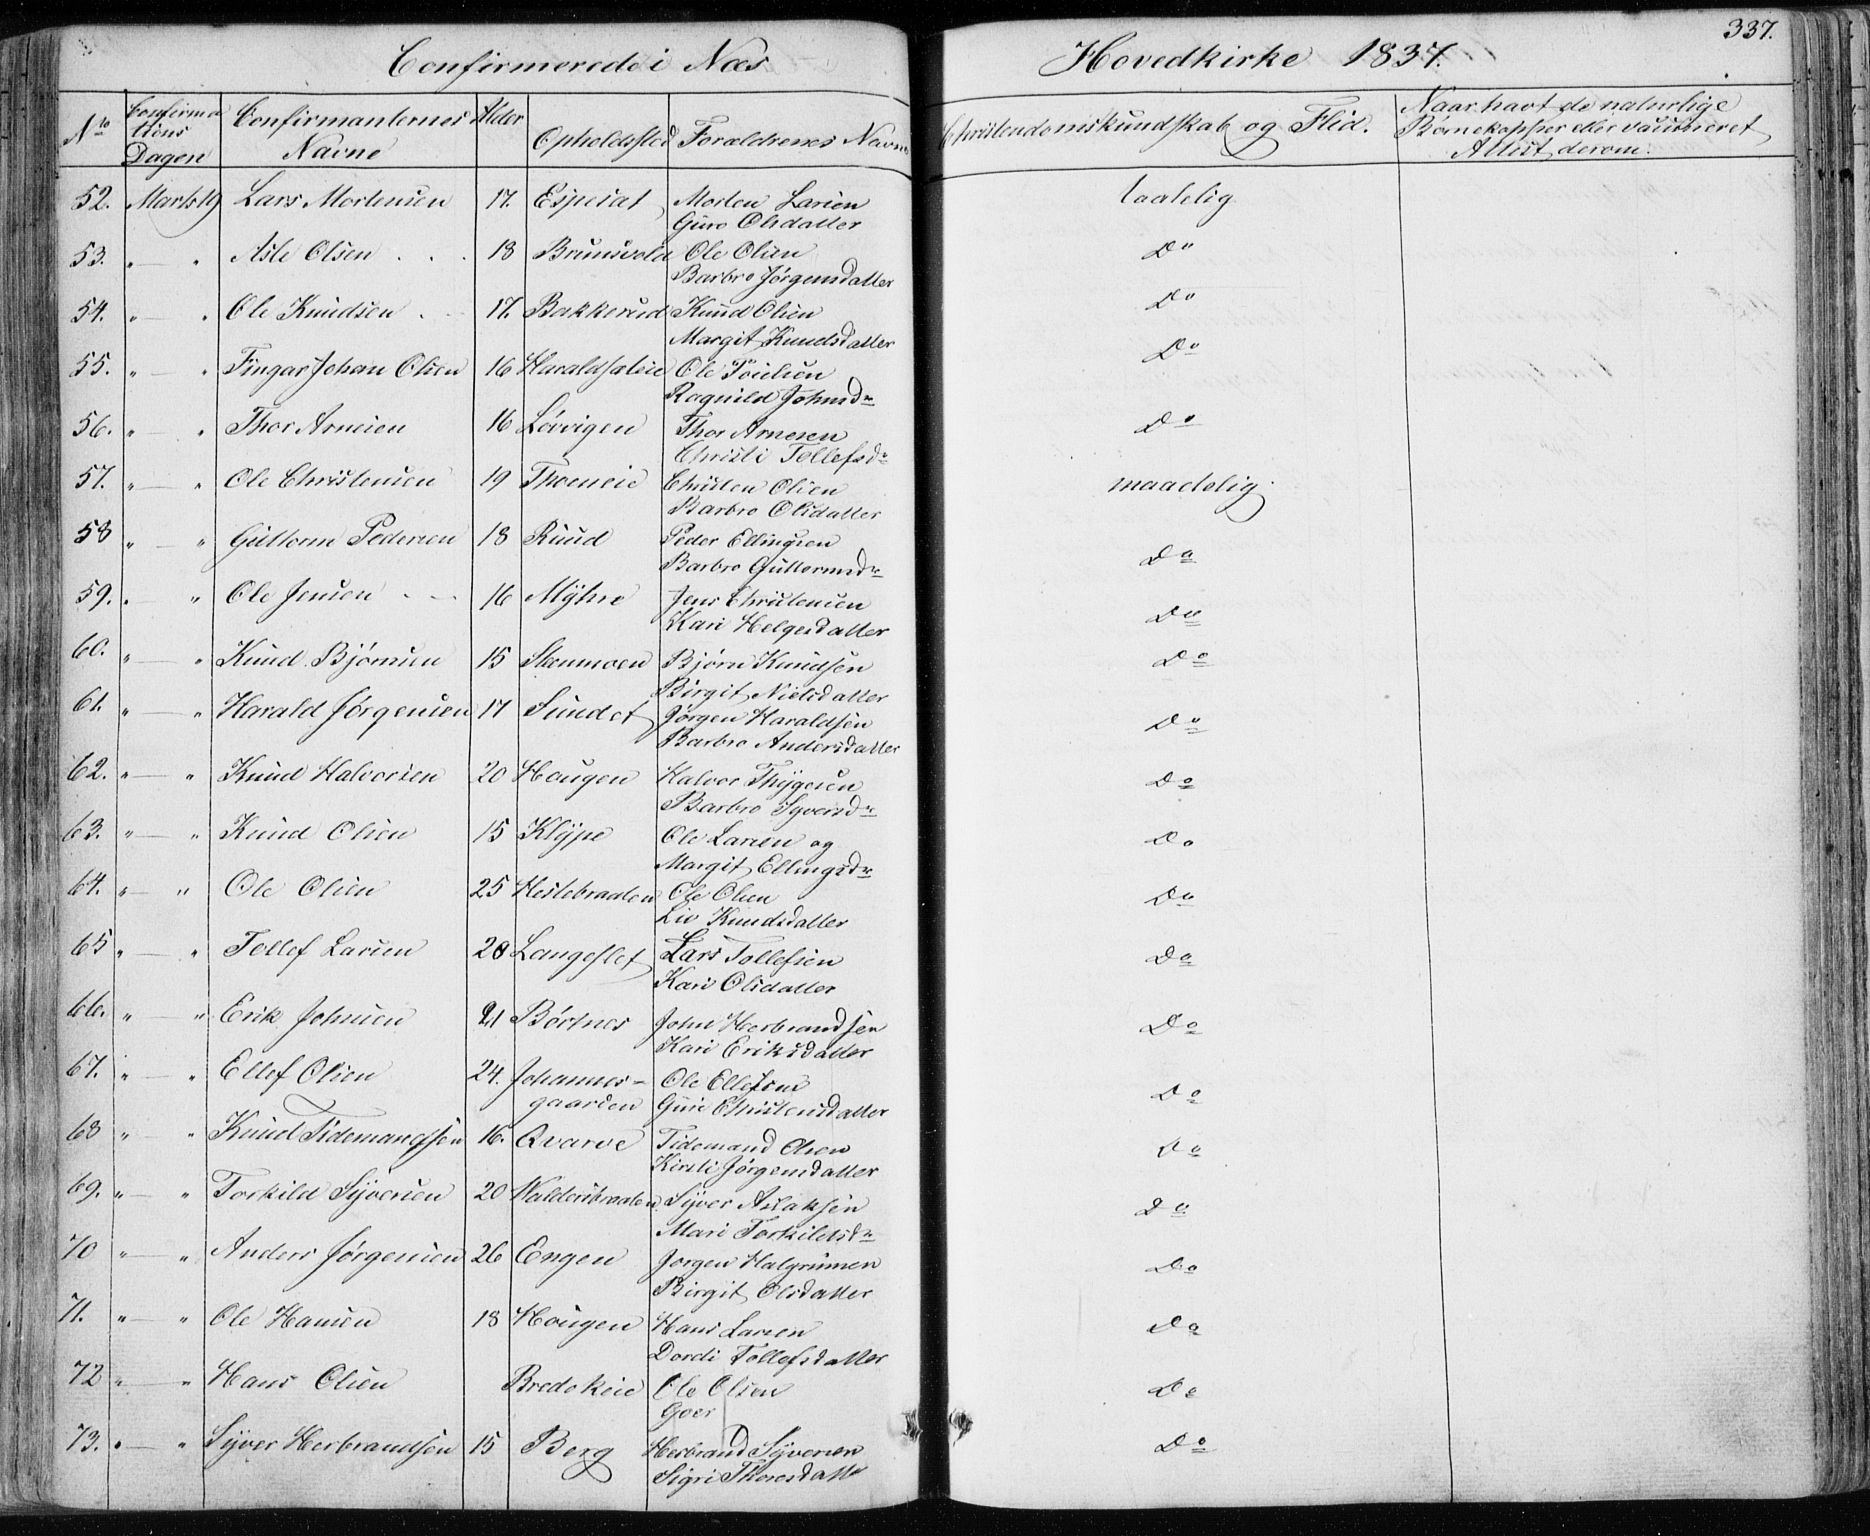 337.
Confirmerede i Næs Hovedkirke 1837
No Confirmationsdagen Confirmanternes Navne Alder Opholdssted Forældrenes Navne Christendomskundskab og Flid. Naar havt de naturlige Børnekopper eller vaccineret Attest derom.
52. Marts 19 Lars Mortensen 17. Espeset Morten Larsen taalelig
Guro Olsdatter
53. " — " Asle Olsen . . . 18 Brunsvold Ole Olsen Do
Barbro Jørgensdatter
54. " — " Ole Knudsen . - 17. Bakkerud Knud Olsen Do
Margit Knudsdatter
55. " — " Fingar Johan Olsen 16 Haraldsøleie Ole Do
Ragnild Johnsdr
56. " — " Thor Arnesen 16 Løvvigen Thor Arnesen Do
Christi Tollefsdr
57. " — " Ole Christensen 19 Thoeneie Christen Olsen maadelig.
Barbro Olsdatter
58 " — " Guttorm Pedersen 18 Ruud Peder Ellingsen Do
Barbro Guttormsdr
59. " — " Ole Jensen - - 16 Myhre Jens Christensen Do
Kari Helgesdatter
60. " — " Knud Bjørnsen 15 Stenmoen Bjørn Knudsen Do
Birgit Nielsdatter
61. " — " Harald Jørgensen 17 Sundet Jørgen Haraldsen Do
Barbro Andersdatter
62. " — " Knud Halvorsen 20 Hougen Halvor Thygesen Do
Barbro Syversdr
63. " — " Knud Olsen 15 Klype Ole Larsen og Do
Margit Ellingsdr
64. " — " Ole Olsen 25 Heslebraaten Ole Olsen Do
Liv Knudsdatter
65 " — " Tollef Larsen 20 Langeslet Lars Tollefsen Do
Kari Olsdatter
66. " — " Erik Johnsen 21 Børtnes John Herbrandsen Do
Kari Eriksdatter
67. " — " Ellef Olsen 24. Johannes- Ole Ellefsen Do
gaarden Guri Christensdatter
68 " — " Knud Tidemandsen 16. Qvarve Tidemand Olsen Do
Kirsti Jørgensdatter
69. " — " Torkild Syversen 20 Waldersbraaten Syver Aslaksen Do
Mari Torkildsdr
70 " — " Anders Jørgensen 26 Engen Jørgen Halgrimsen Do
Birgit Olsdatter
71. " — " Ole Hansen 18 Hougen Hans Larsen Do
Dordi Tollefsdatter
72 " — " Hans Olsen Bredokeie Ole Olsen Do
Goer
73. " — " Syver Herbrandsen 15 Berg Herbrand Syversen Do
Sigri Thoresdatter